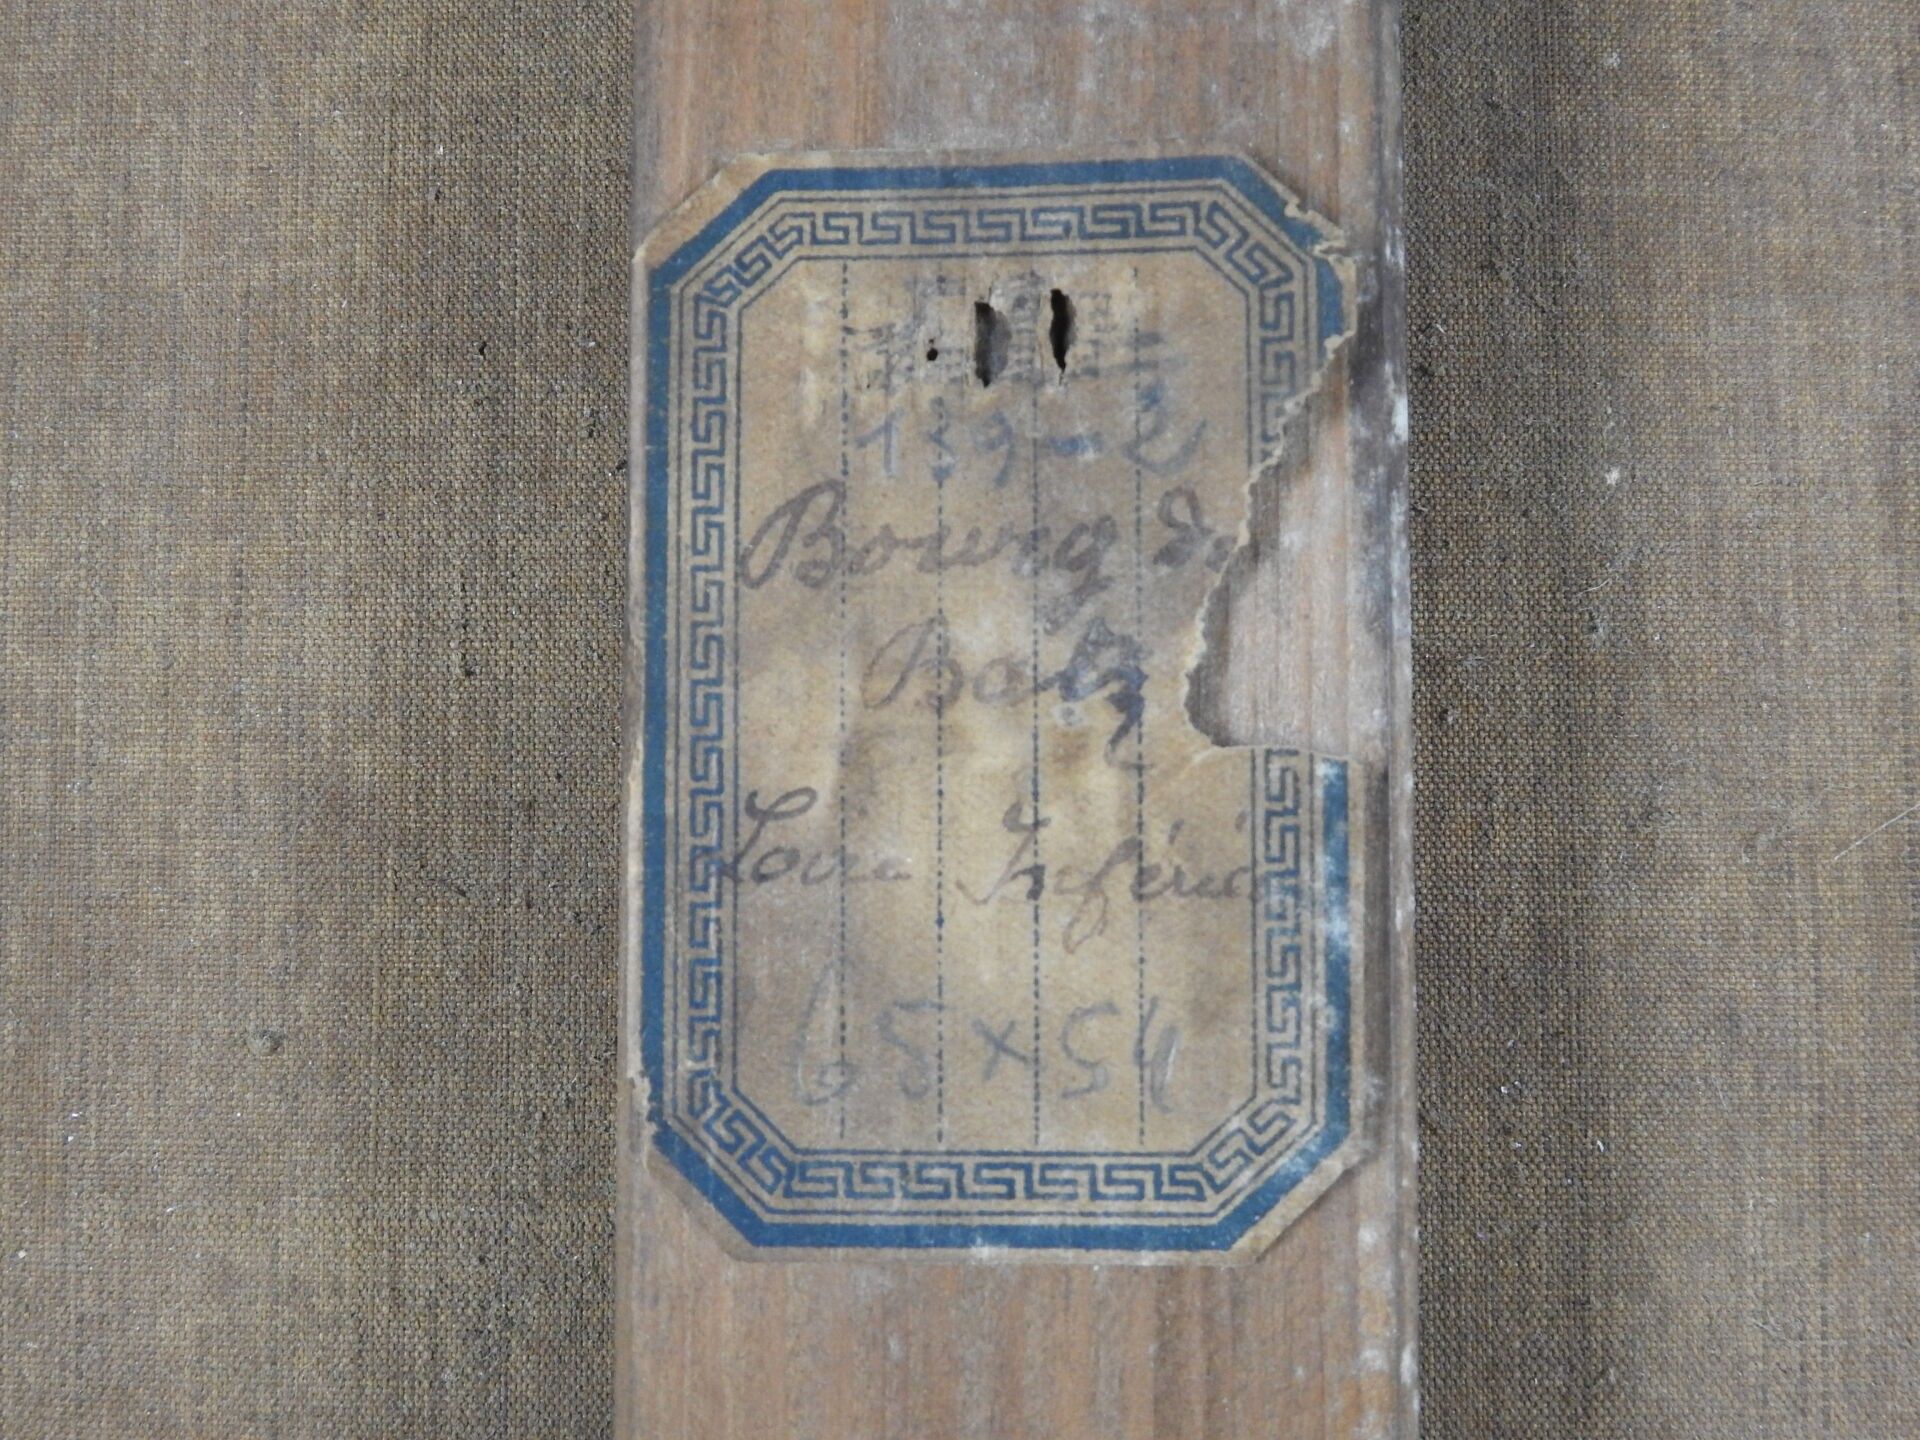 139-2
Bourg de
Batz
Loire Inférieu
65 x 54